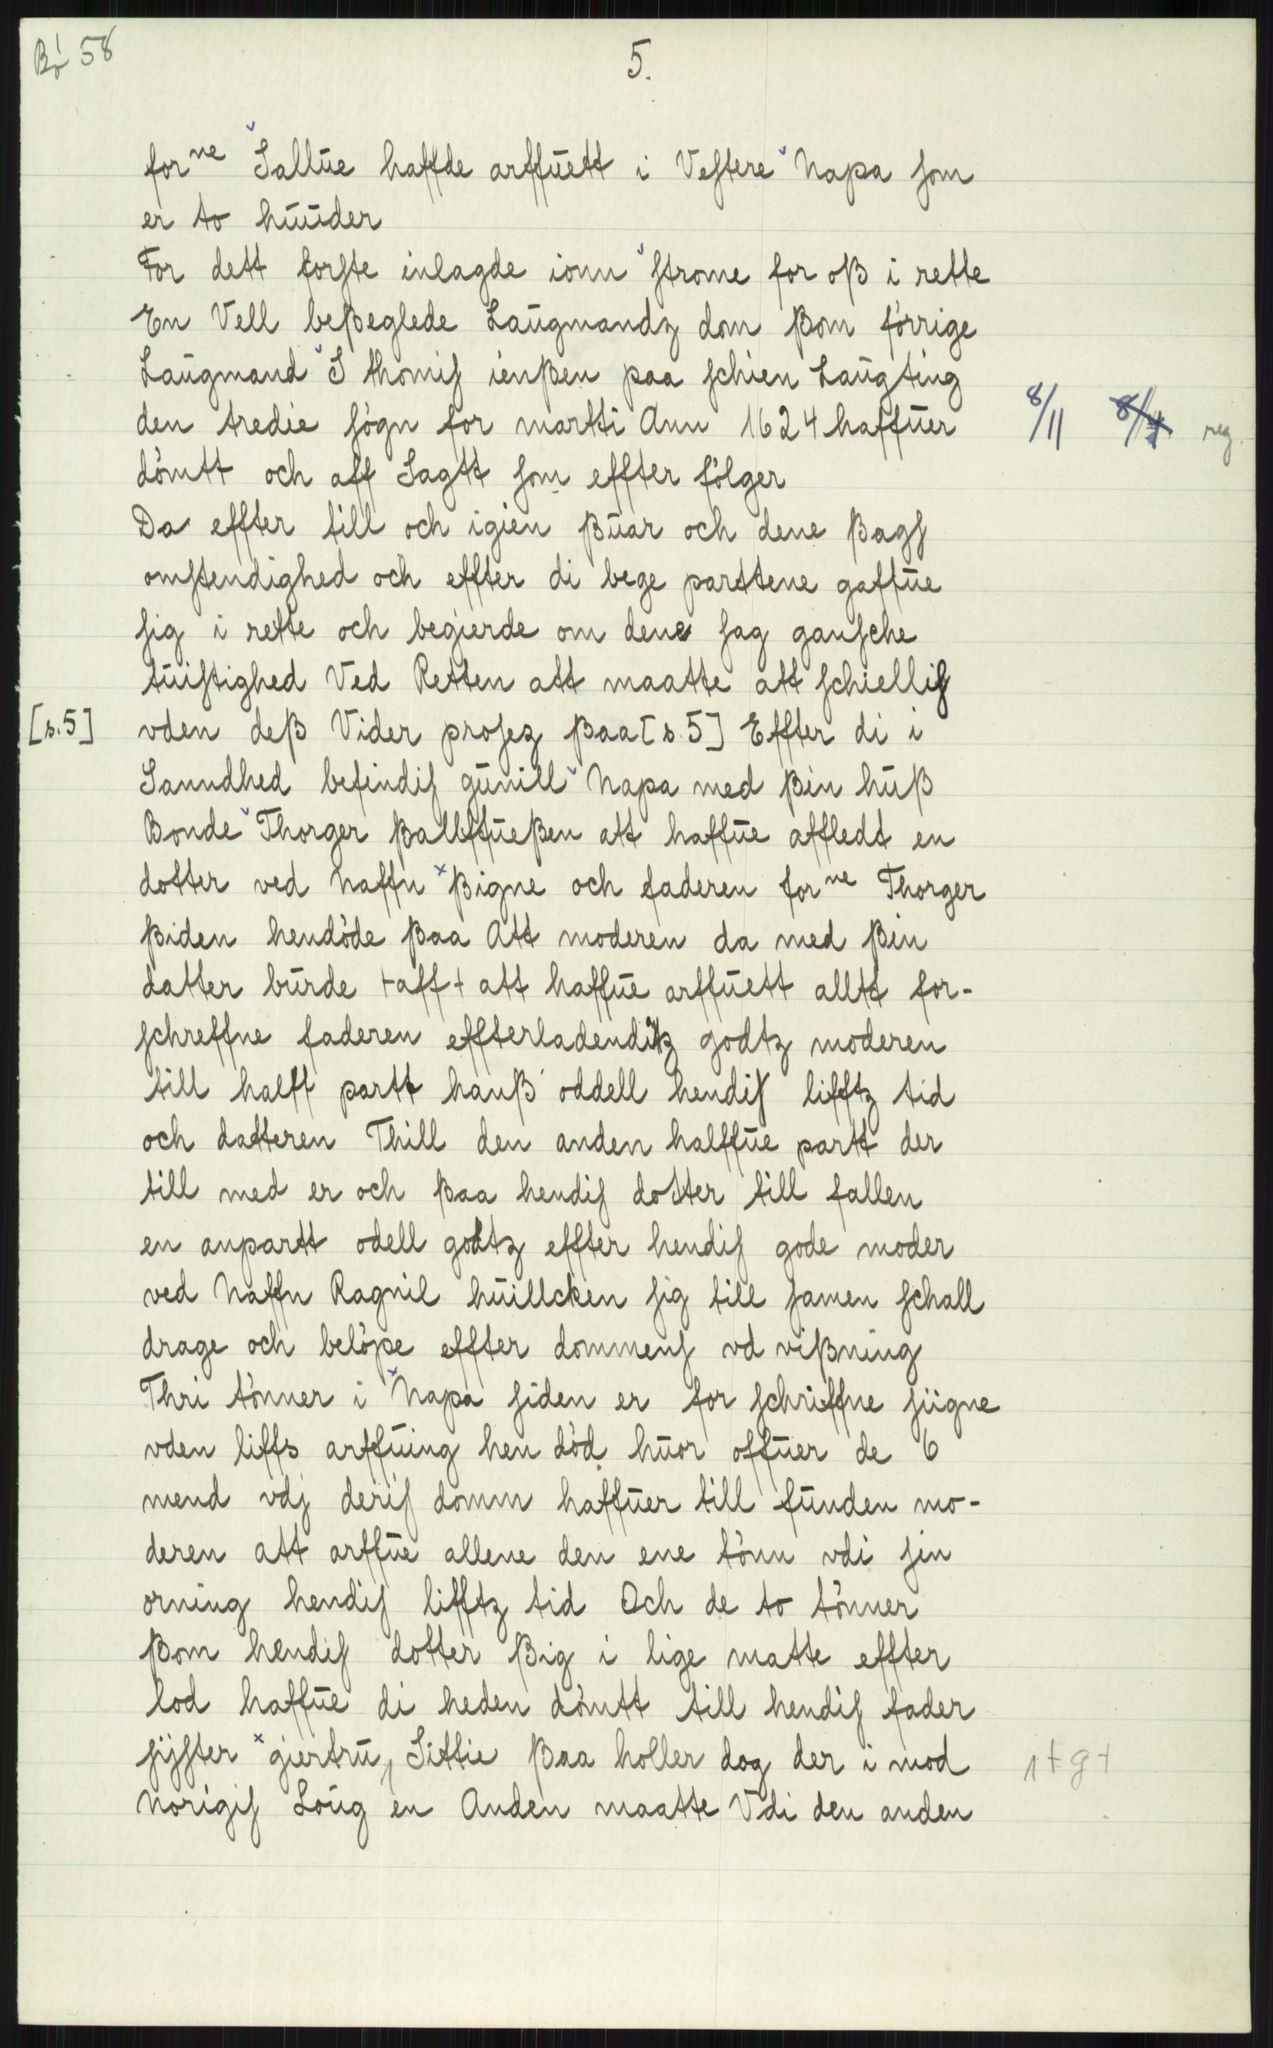 Bø 1 58
5.
for ne Sallue haffde arffuett i Vestere Napa som
er to huuder
For dett forste inlagde ionn strome for oss i rette
En Vell besseglede Laugmandz dom ssom förrige
Laugmand S thomis ienssen paa schien Laugting
den tredie sögn for martti Ann 1624 haffuer 8/11 reg.
dömtt och aff Sagtt som effter fölger
Da effter till och igien ssuar och dene ssags
omstendighed och effter di bege parttene gaffue
sig i rette och begierde om dene sag gansche
tuistighed Ved Retten att maatte att schiellis
[s.5] vden dess Vider prosez ssaa [s.5] Effter di i
Sanndhed befindis gunill Napa med ssin huss
Bonde Thorger ssallffuessen att haffue affledt en
dotter ved naffn ssigne och faderen for ne Thorger
ssiden hendöde ssaa Att moderen da med ssin
datter burde +aff+ att haffue arffuett alltt for-
schreffne faderen effterladenditz godtz moderen
till halff partt hanss oddell hendis lifftz tid
och datteren Thill den anden halffue partt der
till med er och ssaa hendis dotter till fallen
en anpartt odell godtz effter hendis gode moder
ved Naffn Ragnil huillcken sig till samen schall
drage och belöpe effter dommens vd vissning
Thri tönner i Napa siden er for schriffne siigne
vden liffs arffuing hen död huor offuer de 6
mend vdj deris domm haffuer till funden mo-
deren att arffue allene den ene tönn vdi sin
orning hendis lifftz tid Och de to tönner
ssom hendis dotter ssig i lige matte effter
lod haffue di heden dömtt till hendis fader
sÿster giertru, Sittie ssaa holler dog der i mod 1+g+
Norigis Loug en Anden maatte Vdi den anden